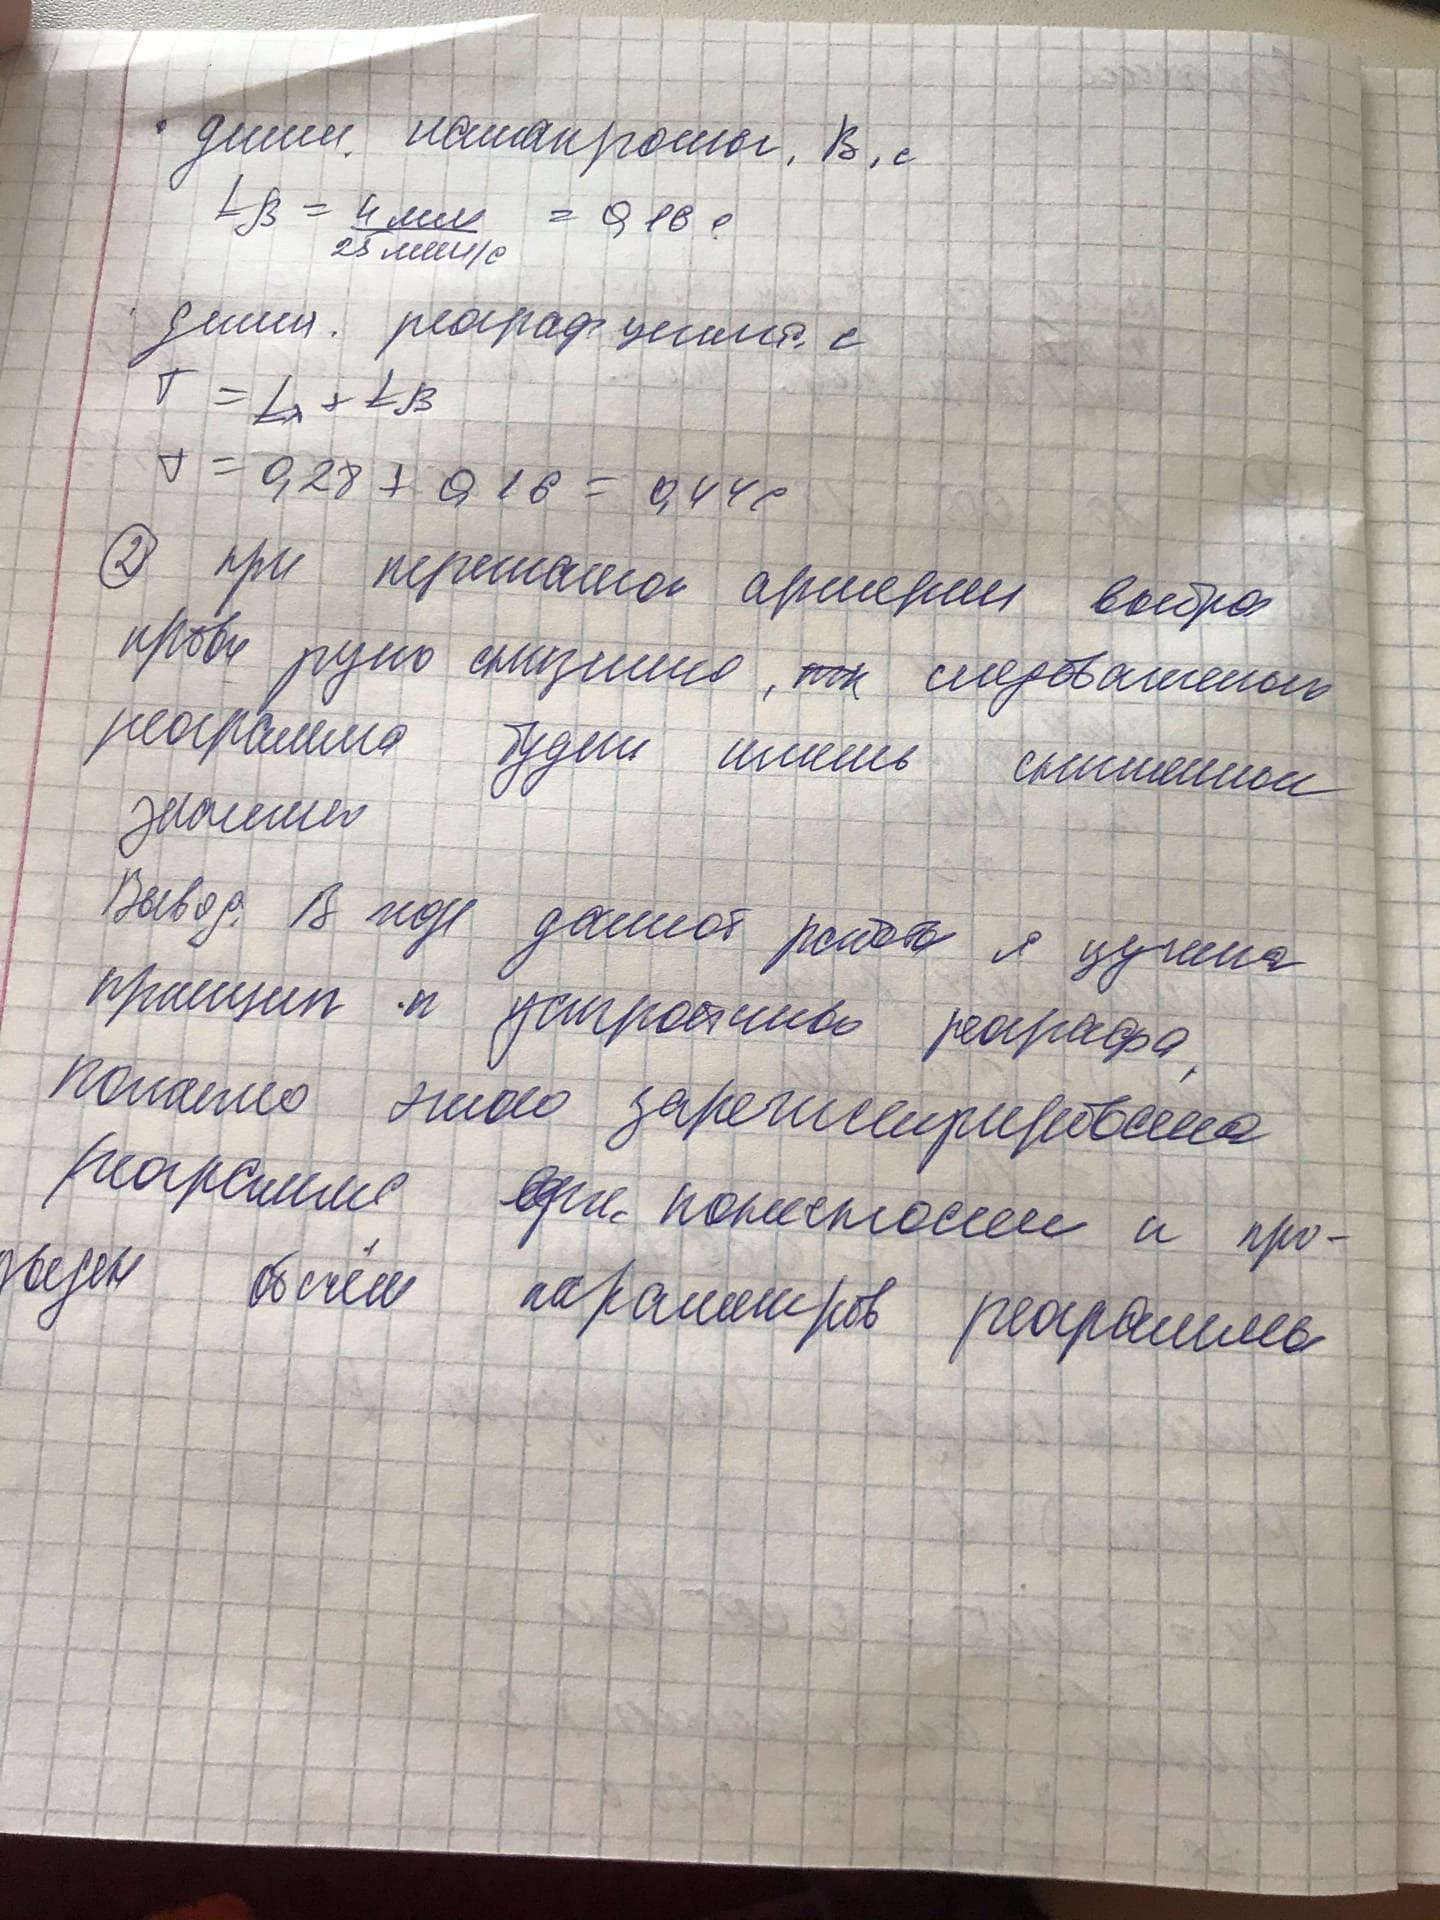 • длит. катакроты, В, с
LB = 4 мм / 25 мм/с = 0,16 с
длит. реограф цикла. с
T = LA + LB
T = 0,28 + 0,16 = 0,44 с
② при пережатой артерии выброс
крови сниженно, следовательно
реограмма будет иметь сниженное
значение
Вывод. В ходе данной работы я изучила
принцип и устройство реографа,
помимо этого зарегистрирована
реограмма и про-
веден обсчёт параметров реограммы